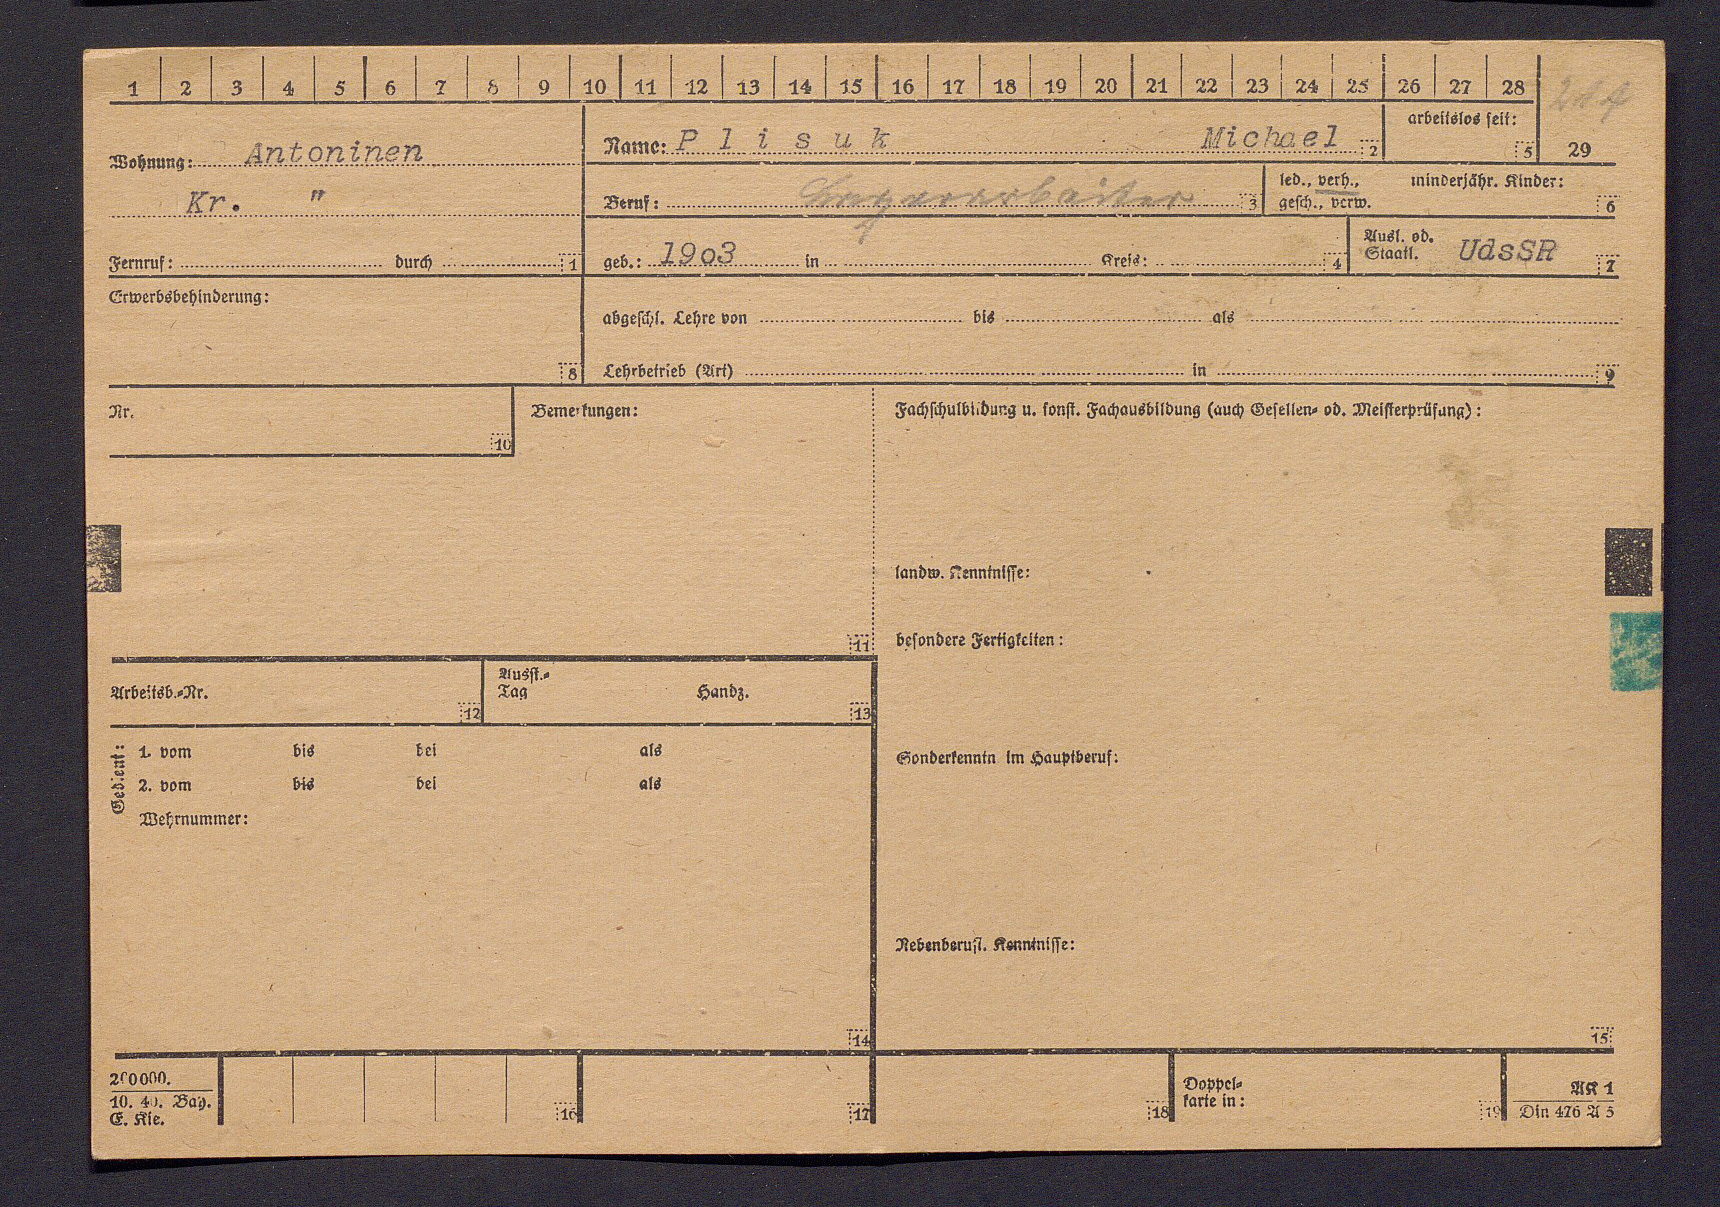 1 2 3 4 5 6 7 8 9 10 11 12 13 14 15 16 17 18 19 20 21 22 23 24 25 26 27 28
Wohnung: Antoninen
Kr. "
Fernruf: durch 1
Name: Plisuk Michael 2
arbeitslos seit: 5
29
Beruf: Lagerarbeiter 3
led., verh., minderjähr. Kinder:
gesch., verw. 6
geb.: 1903 in Kreis: 4
Ausl. od.
Staatl. UdsSR 7
Erwerbsbehinderung: 8
abgeschl. Lehre von bis als
Lehrbetrieb (Art) in 9
Nr. 10
Bemerkungen: 11
Fachschulbildung u. sonst. Fachausbildung (auch Gesellen- od. Meisterprüfung):
landw. Kenntnisse:
besondere Fertigkeiten:
Arbeitsb.-Nr. 12
Ausst.-
Tag Handz. 13
Gedient:
1. vom bis bei als
2. vom bis bei als
Wehrnummer:
14
Sonderkenntn im Hauptberuf:
Nebenberufl. Kenntnisse:
15
200000.
10. 40. Bay.
E. Kle.
16 17 18
Doppel-
karte in: 19
AK 1
Din 476 A 5